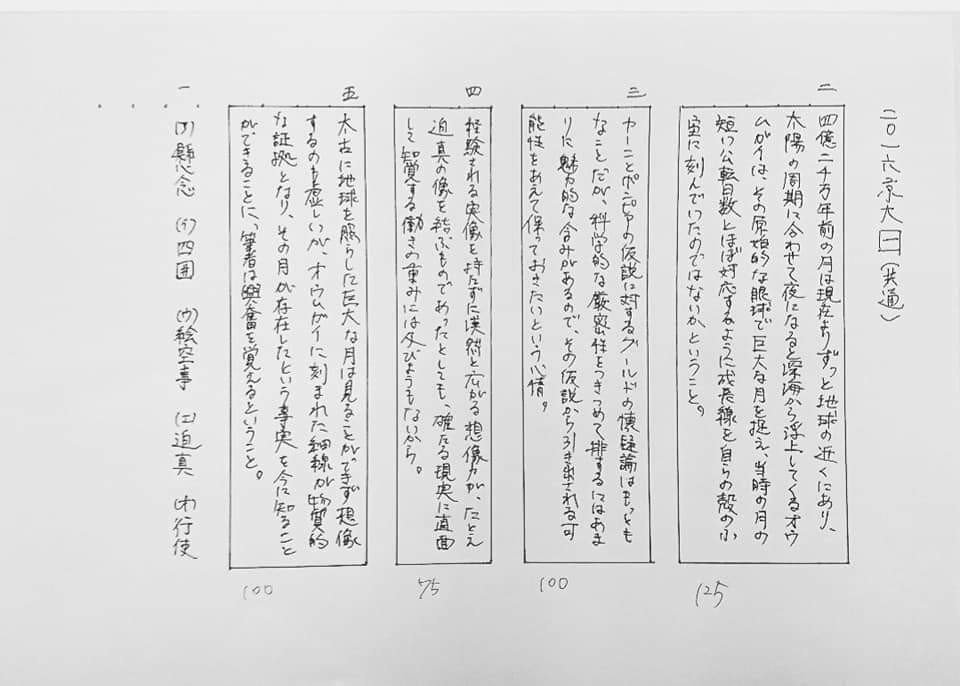 二〇一六京大一(共通)
二
四億二千万年前の月は現在よりずっと地球の近くにあり、
太陽の周期に合わせて夜になると深海から浮上してくるオウ
ムガイは、その原始的な眼球で巨大な月を捉え、当時の月の
短い公転日数とほぼ対応するように成長線を自らの殻の小
室に刻んでいったのではないか、ということ。
125
三
カーンとポンピアの仮説に対するグールドの懐疑論はもっとも
なことだが、科学的な厳密性をつきつめて排するにはあま
りに魅力的な含みがあるので、その仮説から引き出される可
能性をあえて保っておきたいという心情。
100
四
経験される実像を持たずに漠然と広がる想像力が、たとえ
迫真の像を結ぶものであったとしても、確たる現実に直面
して知覚する働きの重みには及びようもないから。
75
五
太古に地球を照らした巨大な月は見ることができず想像
するのも虚しいが、オウムガイに刻まれた細線が物質的
な証拠となり、その月が存在したという事実を今に知ること
ができることに、筆者は興奮を覚えるということ。
100
一
(ア)懸念 (イ)四囲 (ウ)絵空事 (エ)迫真 (オ)行使